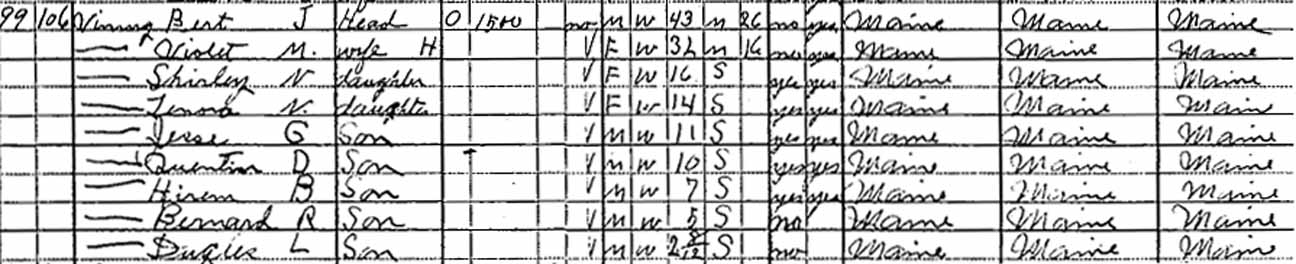 99 106 Vining Bert J Head O 1500 no M W 43 M 26 no yes Maine Maine Maine
— Violet M. wife H V F W 32 M 16 no yes Maine Maine Maine
— Shirley N daughter V F W 16 S yes yes Maine Maine Maine
— Lenora N daughter V F W 14 S yes yes Maine Maine Maine
— Jesse G Son V M W 11 S yes yes Maine Maine Maine
— Quentin D Son V M W 10 S yes yes Maine Maine Maine
— Hirem B Son V M W 7 S yes yes Maine Maine Maine
— Bernard R Son V M W 5 S no Maine Maine Maine
— L Son V M W S no Maine Maine Maine